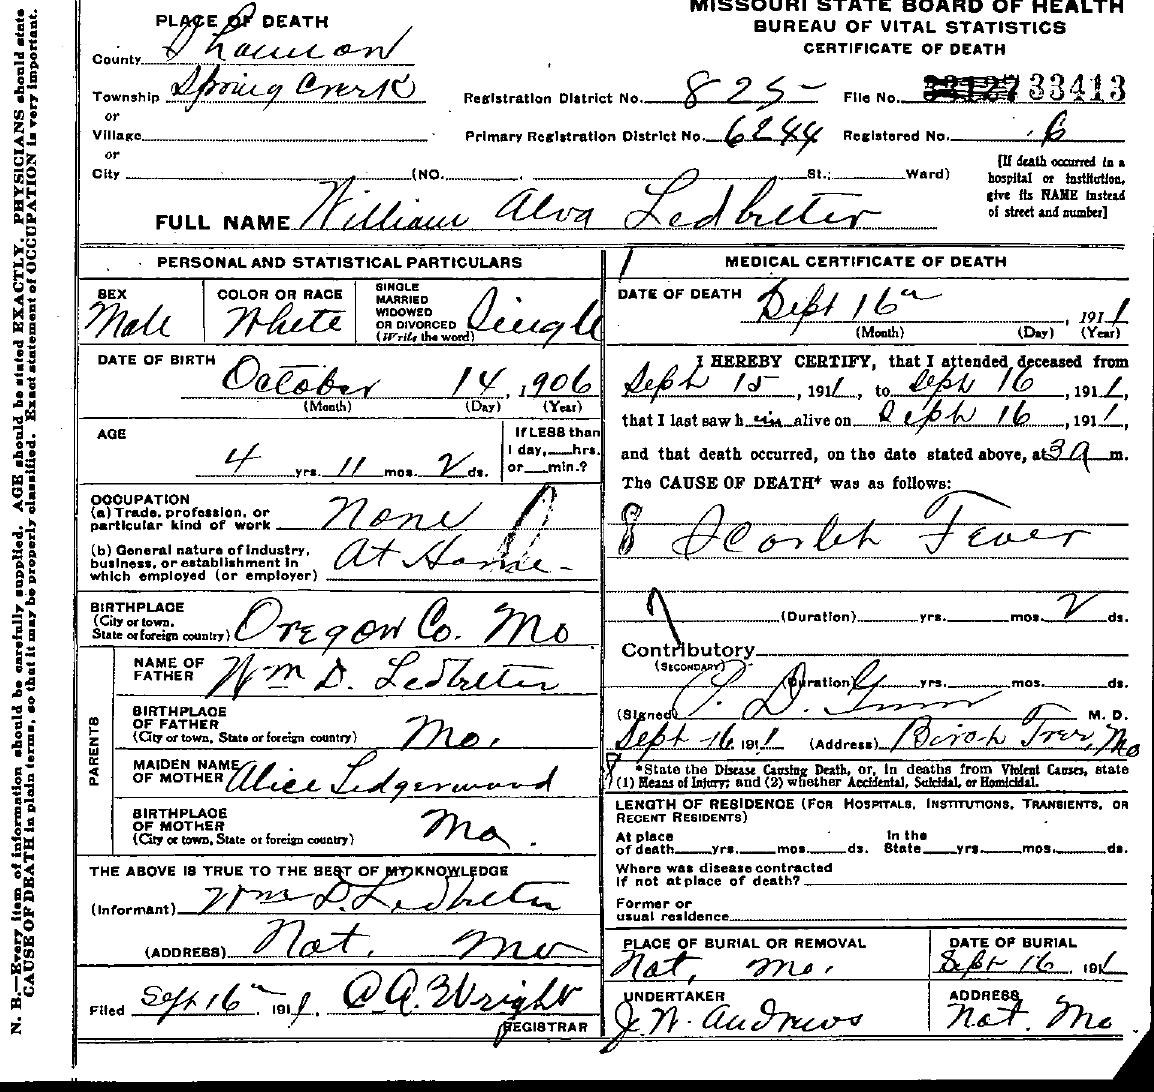 MISSOURI STATE BOARD OF HEALTH
BUREAU OF VITAL STATISTICS
CERTIFICATE OF DEATH
PLACE OF DEATH
County Shannon
Township Spring Creek
or
Village
or
City (NO. St.; Ward)
Registration District No. 825 File No. 33413
Primary Registration District No. 6244 Registered No. 6
[If death occurred in a
hospital or institution,
give its NAME instead
of street and number]
FULL NAME William Alva Ledbetter
PERSONAL AND STATISTICAL PARTICULARS
SEX
Male
COLOR OR RACE
White
SINGLE
MARRIED
WIDOWED
OR DIVORCED
(Write the word)
Single
DATE OF BIRTH
October 14, 1906
(Month) (Day) (Year)
AGE
4 yrs. 11 mos. 2 ds.
If LESS than
1 day, hrs.
or min.?
OCCUPATION
(a) Trade, profession, or
particular kind of work None
(b) General nature of industry,
business, or establishment in
which employed (or employer) At Home
BIRTHPLACE
(City or town,
State or foreign country) Oregon Co. Mo
PARENTS
NAME OF
FATHER Wm D. Ledbetter
BIRTHPLACE
OF FATHER
(City or town, State or foreign country) Mo.
MAIDEN NAME
OF MOTHER Alice Ledgerwood
BIRTHPLACE
OF MOTHER
(City or town, State or foreign country) Mo.
THE ABOVE IS TRUE TO THE BEST OF MY KNOWLEDGE
(Informant) Wm D. Ledbetter
(ADDRESS) Nat. Mo
Filed Sept 16th 1911 Wright
REGISTRAR
MEDICAL CERTIFICATE OF DEATH
DATE OF DEATH Sept 16th, 1911
(Month) (Day) (Year)
I HEREBY CERTIFY, that I attended deceased from
Sept 15, 1911, to Sept 16, 1911,
that I last saw him alive on Sept 16, 1911,
and that death occurred, on the date stated above, at 3 a m.
The CAUSE OF DEATH* was as follows:
8 Scarlet Fever
(Duration) yrs. mos. 2 ds.
Contributory
(SECONDARY)
(Duration) yrs. mos. ds.
(Signed) M. D.
Sept 16, 1911 (Address) Birch Tree, Mo
*State the Disease Causing Death, or, in deaths from Violent Causes, state
(1) Means of Injury; and (2) whether Accidental, Suicidal, or Homicidal.
LENGTH OF RESIDENCE (FOR HOSPITALS, INSTITUTIONS, TRANSIENTS, OR
RECENT RESIDENTS)
At place
of death yrs. mos. ds.
In the
State yrs. mos. ds.
Where was disease contracted
if not at place of death?
Former or
usual residence
PLACE OF BURIAL OR REMOVAL
Nat, Mo.
DATE OF BURIAL
Sept 16, 1911
UNDERTAKER
J. W. Andrews
ADDRESS
Nat. Mo
N. B.—Every item of information should be carefully supplied. AGE should be stated EXACTLY. PHYSICIANS should state
CAUSE OF DEATH in plain terms, so that it may be properly classified. Exact statement of OCCUPATION is very important.